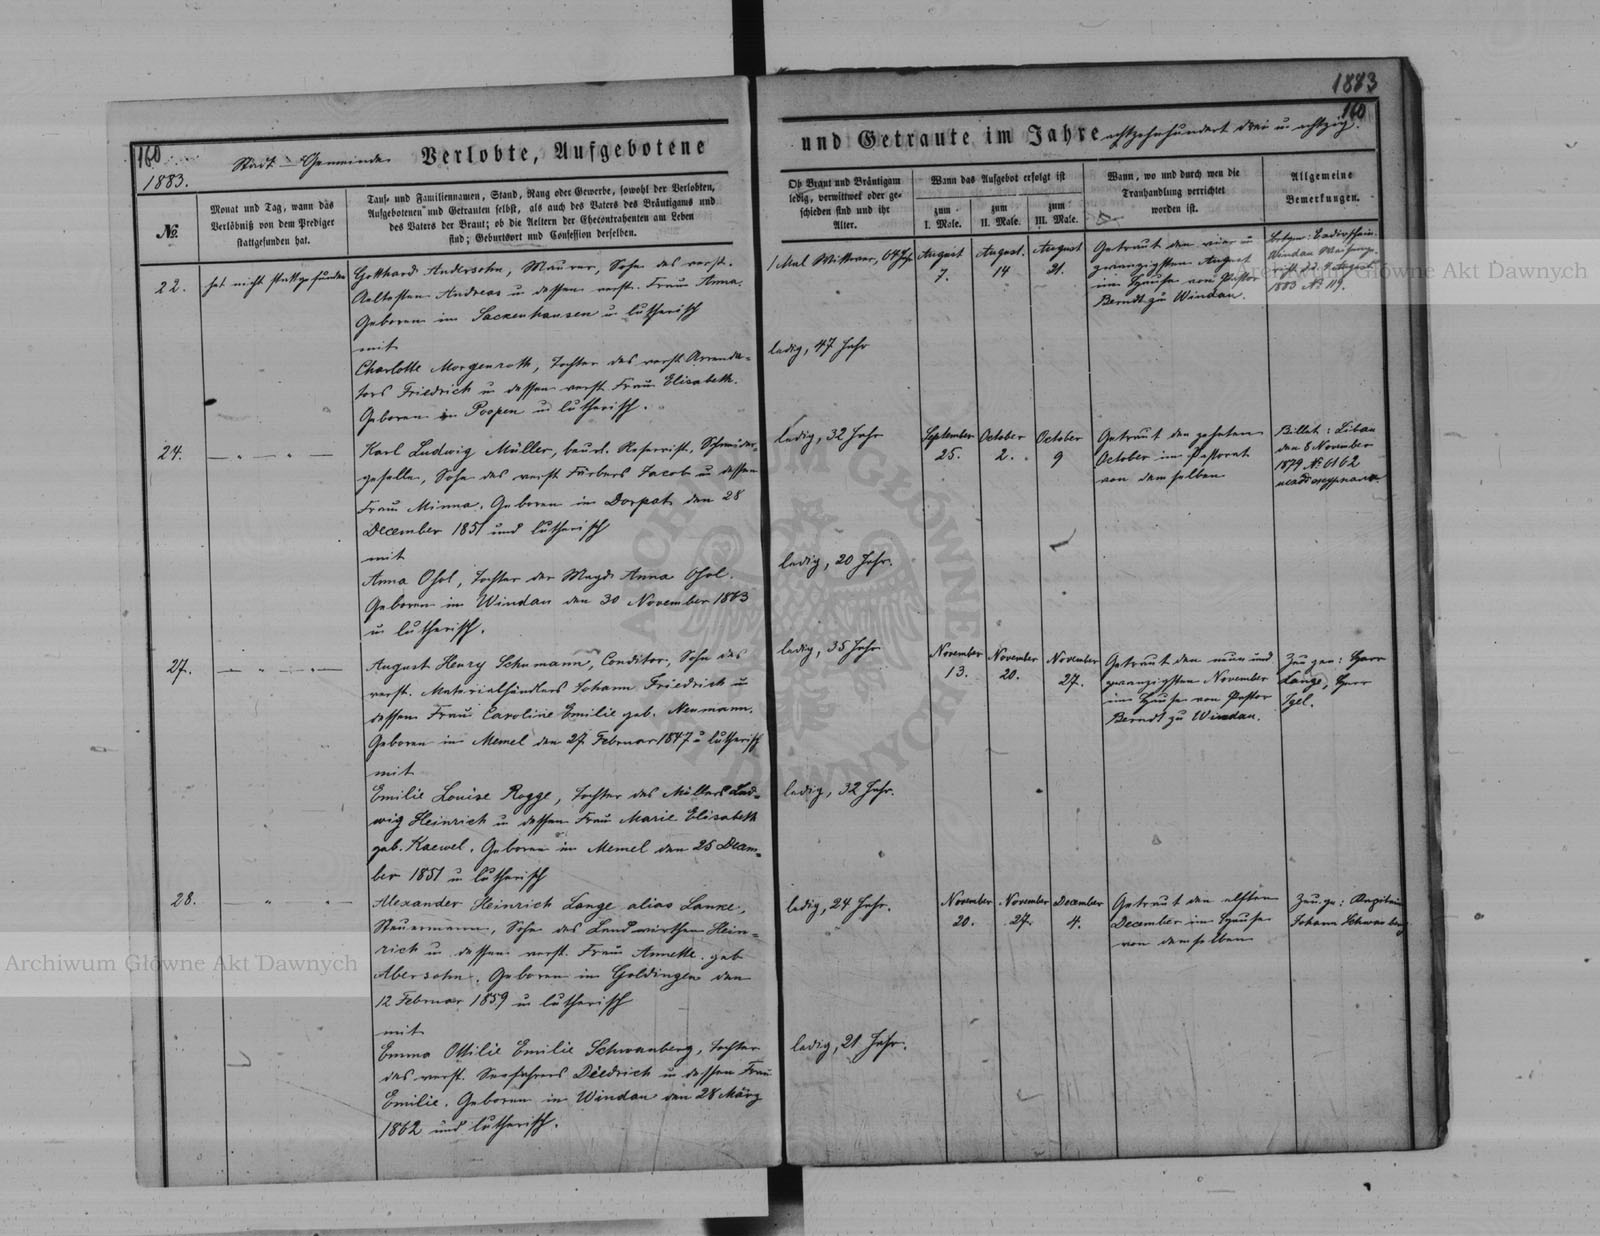 1883
160
160
1883.
Stadt-Gemeinde Verlobte, Aufgebotene
und Getraute im Jahre achtzehnhundert drei u achtzig.
№
Monat und Tag, wann das
Verlöbniß von dem Prediger
stattgefunden hat.
Tauf- und Familiennamen, Stand, Rang oder Gewerbe, sowohl der Verlobten,
Aufgebotenen und Getrauten selbst, als auch des Vaters des Bräutigams und
des Vaters der Braut; ob die Aeltern der Ehecontrahenten am Leben
sind; Geburtsort und Confession derselben.
Ob Braut und Bräutigam
ledig, verwittwet oder ge-
schieden sind und ihr
Alter.
Wann das Aufgebot erfolgt ist
zum
I. Male.
zum
II. Male.
zum
III. Male.
Wann, wo und durch wen die
Trauhandlung verrichtet
worden ist.
Allgemeine
Bemerkungen.
22.
hat nicht stattgefunden
Gotthard Andersohn, Maurer, Sohn des verst.
Aeltesten Andreas u dessen verst. Frau Anna.
Geboren im Sackenhausen u lutherisch
mit
Charlotte Morgenroth, Tochter des verst. Arrenda-
tors Friedrich u dessen verst. Frau Elisabeth.
Geboren in Poopen u lutherisch.
1 Mal Wittwer, 64 Jahr
ledig, 47 Jahr
August
7.
August.
14
August
21.
Getraut den vier u
zwanzigsten August
im Hause von Pastor
Berndt zu Windau.
Windau
1883 № 119.
24.
Karl Ludwig Müller, beurl. Reservist, Schneider-
geselle, Sohn des verst. Färbers Jacob u dessen
Frau Minna. Geboren in Dorpat den 28
December 1851 und lutherisch
mit
Anna Ohol, Tochter der Magd Anna Ohol.
Geboren in Windau den 30 November 1863
u lutherisch.
ledig, 32 Jahr
ledig, 20 Jahr.
September
25.
October
2.
October
9
Getraut den zehnten
October im Pastorat
von demselben
Billet: Libau
den 8 November
1879 № 6162
27.
August Henry Schumann, Conditor, Sohn des
verst. Materialhändlers Johann Friedrich u
dessen Frau Caroline Emilie geb. Neumann.
Geboren in Memel den 27 Februar 1847 u lutherisch
mit
Emilie Louise Rogge, Tochter des Müllers Lud-
wig Heinrich u dessen Frau Marie Elisabeth
geb. Kaewel. Geboren in Memel den 25 Decem-
ber 1851 u lutherisch
ledig, 35 Jahr
ledig, 32 Jahr.
November
13.
November
20.
November
27.
Getraut den neun und
zwanzigsten November
im Hause von Pastor
Berndt zu Windau.
Zeugen: Herr
Lange, Herr
Igel.
28.
Alexander Heinrich Lange alias Lanke,
Steuermann, Sohn des Landwirthen Hein-
rich u dessen verst. Frau Annette geb
Abersohn. Geboren in Goldingen den
12 Februar 1859 u lutherisch
mit
Emma Ottilie Emilie Schwanberg, Tochter
des verst. Seefahrers Diedrich u dessen Frau
Emilie. Geboren in Windau den 28 März
1862 und lutherisch.
ledig, 24 Jahr.
ledig, 21 Jahr.
November
20.
November
27.
December
4.
Getraut den elften
December im Hause
von demselben
Zeuge: Kapitain
Johann Schwanberg
Archiwum Główne Akt Dawnych
Archiwum Główne Akt Dawnych
ARCHIWUM GŁÓWNE AKT DAWNYCH